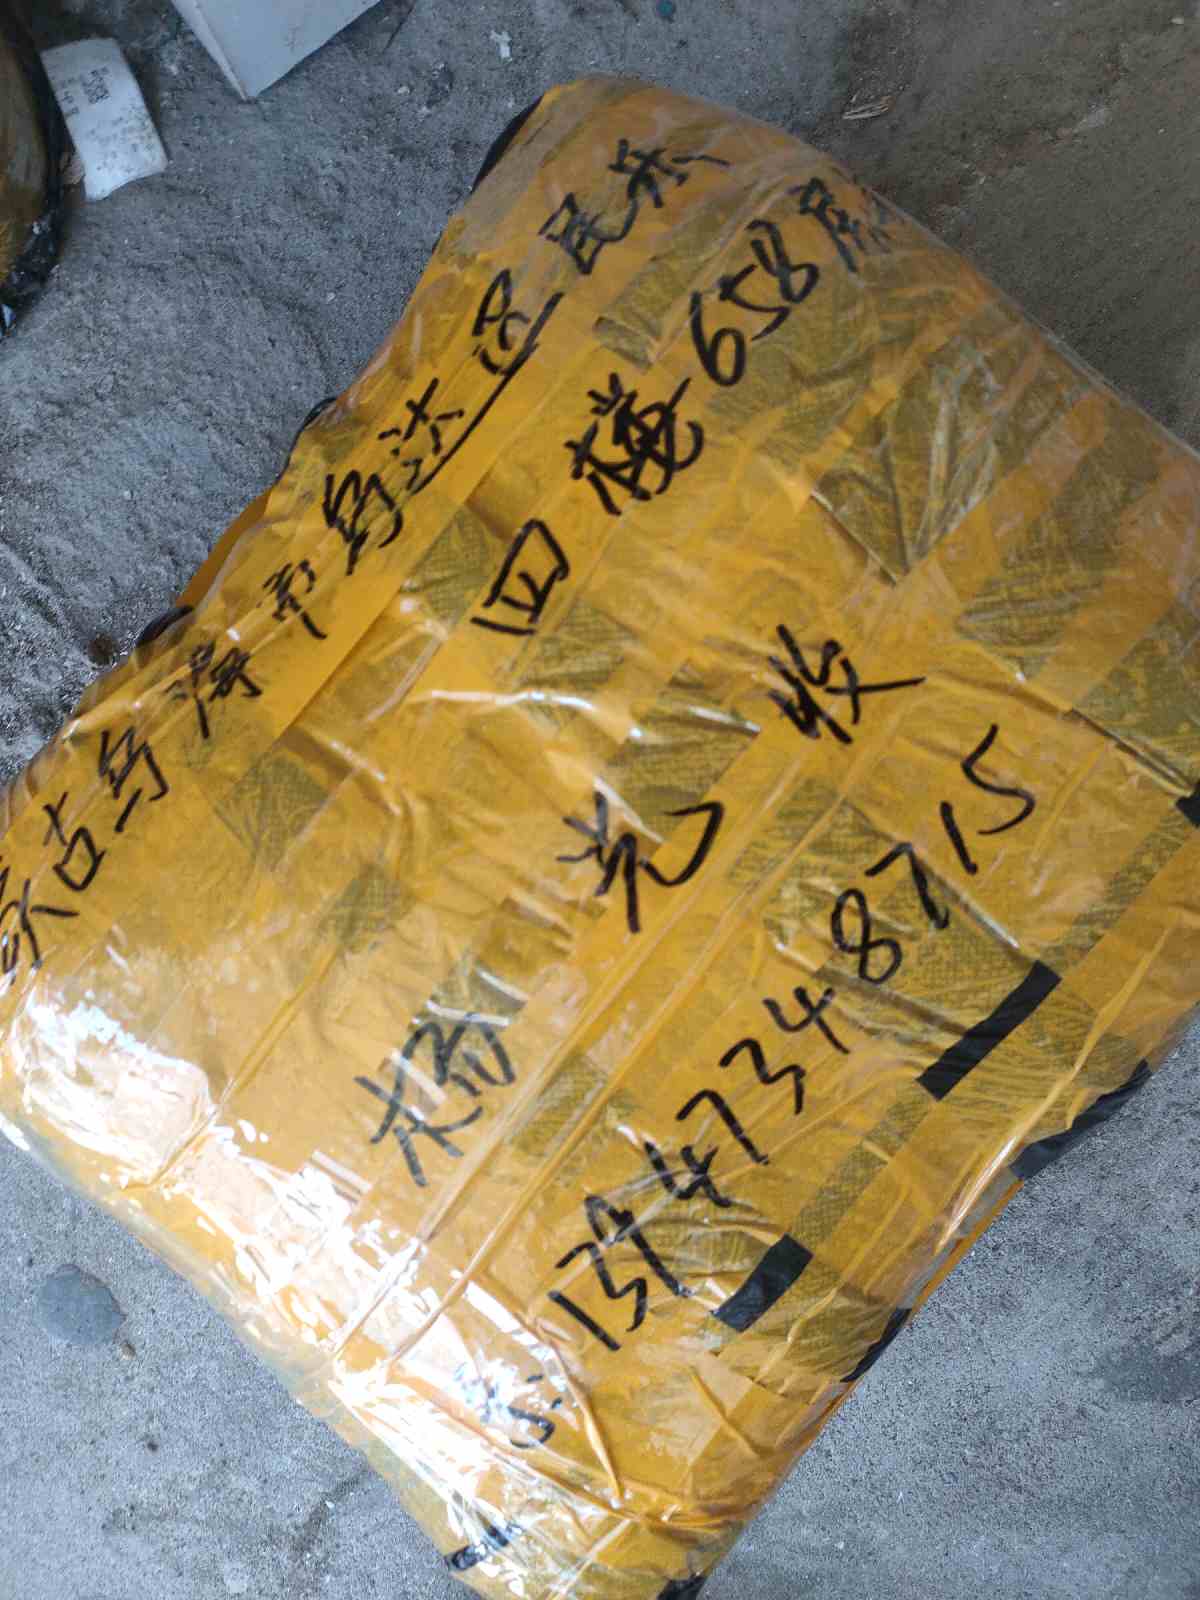 蒙古乌海市乌达区居然
四楼658房
杨光 收
13947348715